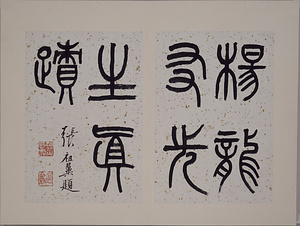 楊龍
友先
生真
蹟
張祖翼題